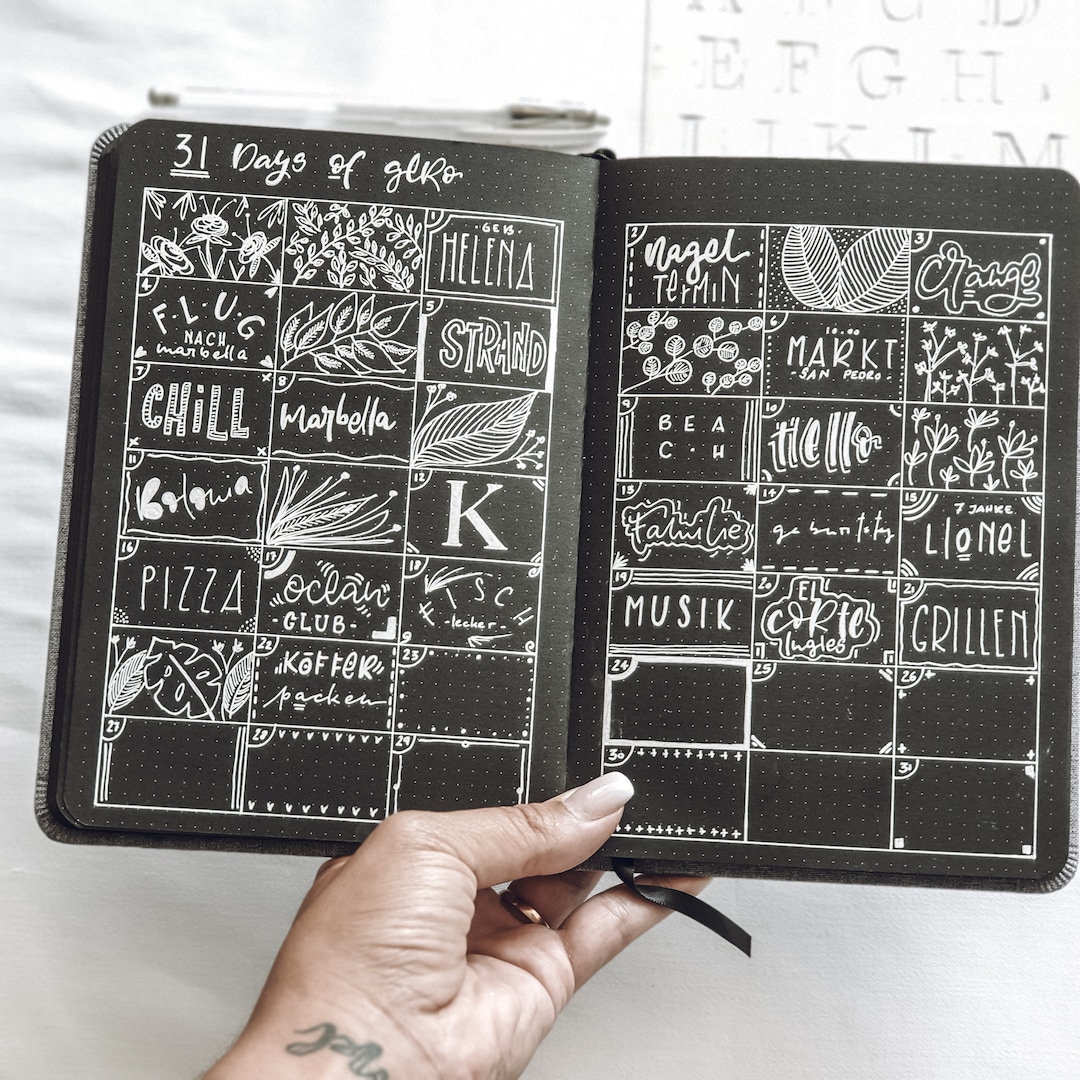 A B C D
E F G H
I J K L M
31 Days of glRo
·GEB·
HELENA
2
Nagel
TERMIN
3
orange
4
F·L·U·G
NACH
marbella
5
STRAND
6
10:00
MARKT
·SAN PEDRO·
7
CHiLL
8
marbella
9
BEA
C·H
10
Hello
11
Bolonia
12
K
13
Familie
14
geburtstag
15
7 JAHRE
LIoNeL
16
PIZZA
17
ocean
CLUB
18
-lecker-
19
MUSIK
20
EL
CORTE
Ingles
21
GRILLEN
22
"KOFFER"
packen
23
24
25
26
27
28
29
30
31